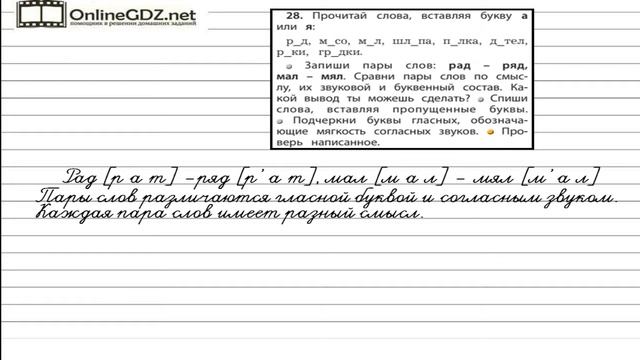 OnlineGDZ.net
помощник в решении домашних заданий
28. Прочитай слова, вставляя букву а
или я:
р_д, м_со, м_л, шл_па, п_лка, д_тел,
р_ки, гр_дки.
Запиши пары слов: рад – ряд,
мал – мял. Сравни пары слов по смыс-
лу, их звуковой и буквенный состав. Ка-
кой вывод ты можешь сделать? Спиши
слова, вставляя пропущенные буквы.
Подчеркни буквы гласных, обознача-
ющие мягкость согласных звуков. Про-
верь написанное.
Рад [р а т] – ряд [р' а т], мал [м а л] – мял [м' а л]
Пары слов различаются гласной буквой и согласным звуком.
Каждая пара слов имеет разный смысл.